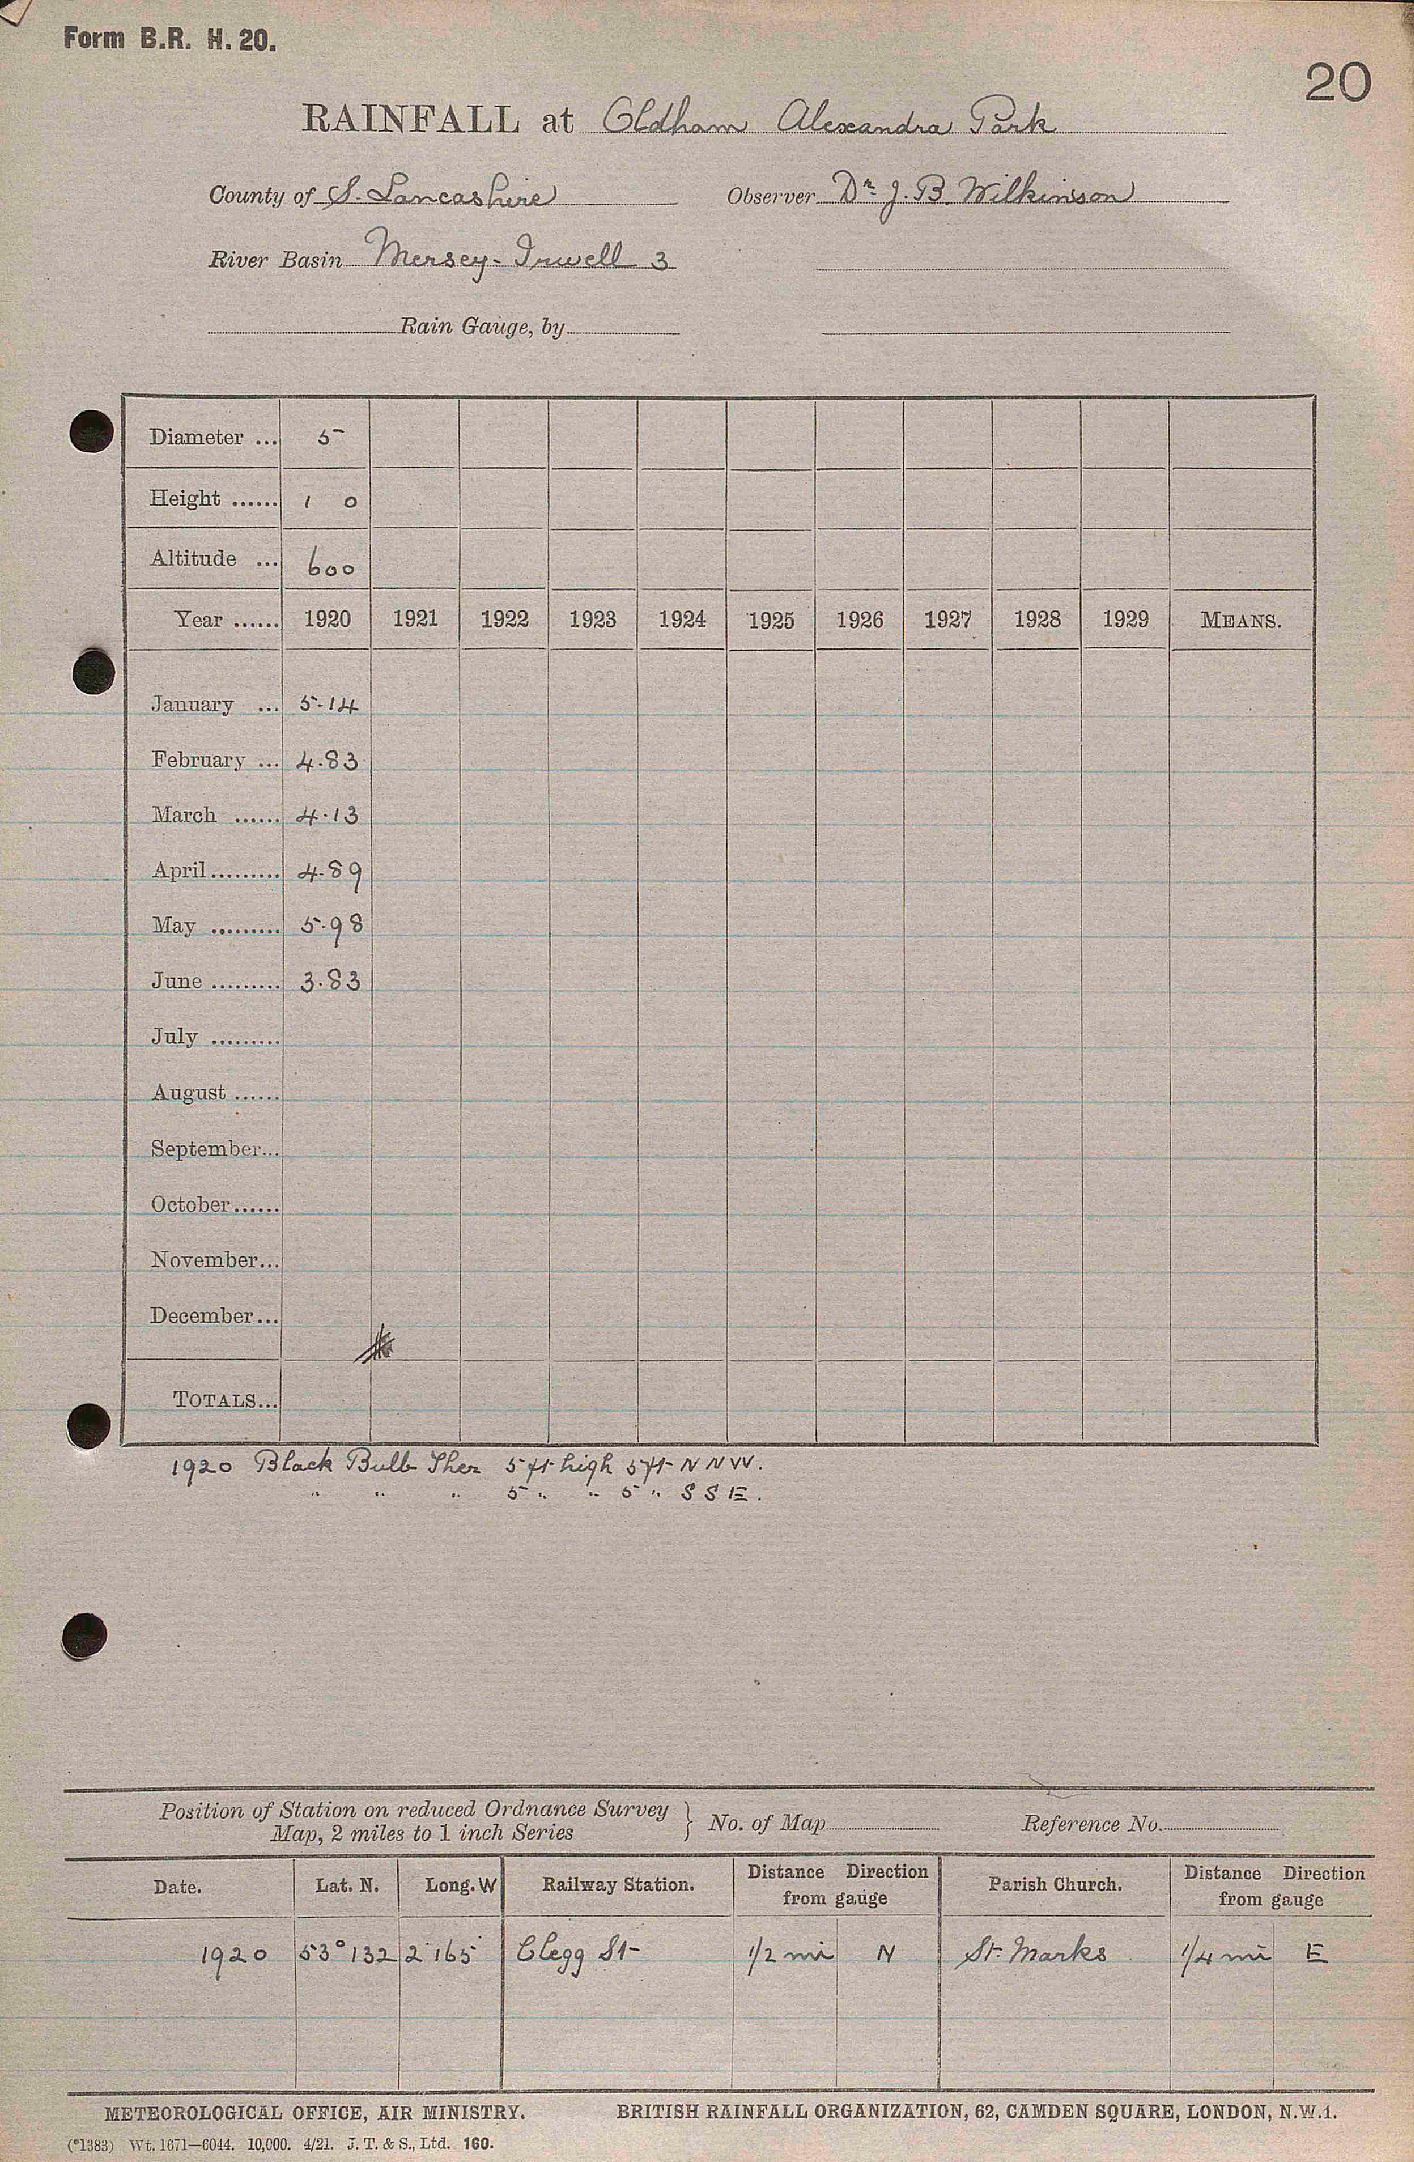 Form B.R. H. 20.
20
RAINFALL at Oldham Alexandra Park
County of S. Lancashire Observer Dr J. B. Wilkinson
River Basin Mersey-Irwell 3
Rain Gauge, by
Diameter ... 5
Height ...... 1 0
Altitude ... 600
Year ...... 1920 1921 1922 1923 1924 1925 1926 1927 1928 1929 MEANS.
January ... 5.14
February ... 4.83
March ...... 4.13
April ......... 4.89
May ......... 5.98
June ......... 3.83
July .........
August ......
September...
October ......
November...
December...
TOTALS...
1920 Black Bulb Ther 5 ft high 5 ft N N W.
" " " 5 " " 5 " S S E.
Position of Station on reduced Ordnance Survey
Map, 2 miles to 1 inch Series } No. of Map Reference No.
Date. Lat. N. Long. W Railway Station. Distance Direction from gauge Parish Church. Distance Direction from gauge
1920 53° 132 2 165 Clegg St 1/2 mi N St. Marks 1/4 mi E
METEOROLOGICAL OFFICE, AIR MINISTRY. BRITISH RAINFALL ORGANIZATION, 62, CAMDEN SQUARE, LONDON, N.W.1.
(*1383) Wt. 1671—6044. 10,000. 4/21. J. T. & S., Ltd. 160.